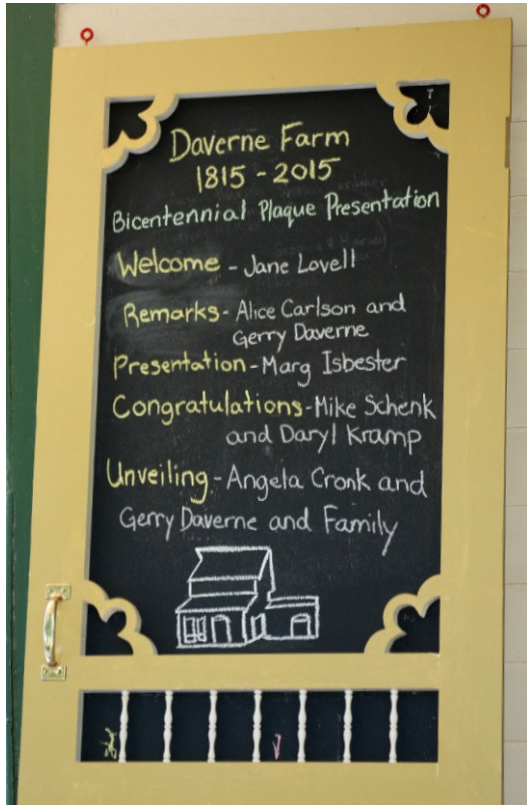 Daverne Farm
1815 - 2015
Bicentennial Plaque Presentation
Welcome - Jane Lovell
Remarks - Alice Carlson and
Gerry Daverne
Presentation - Marg Isbester
Congratulations - Mike Schenk
and Daryl Kramp
Unveiling - Angela Cronk and
Gerry Daverne and Family